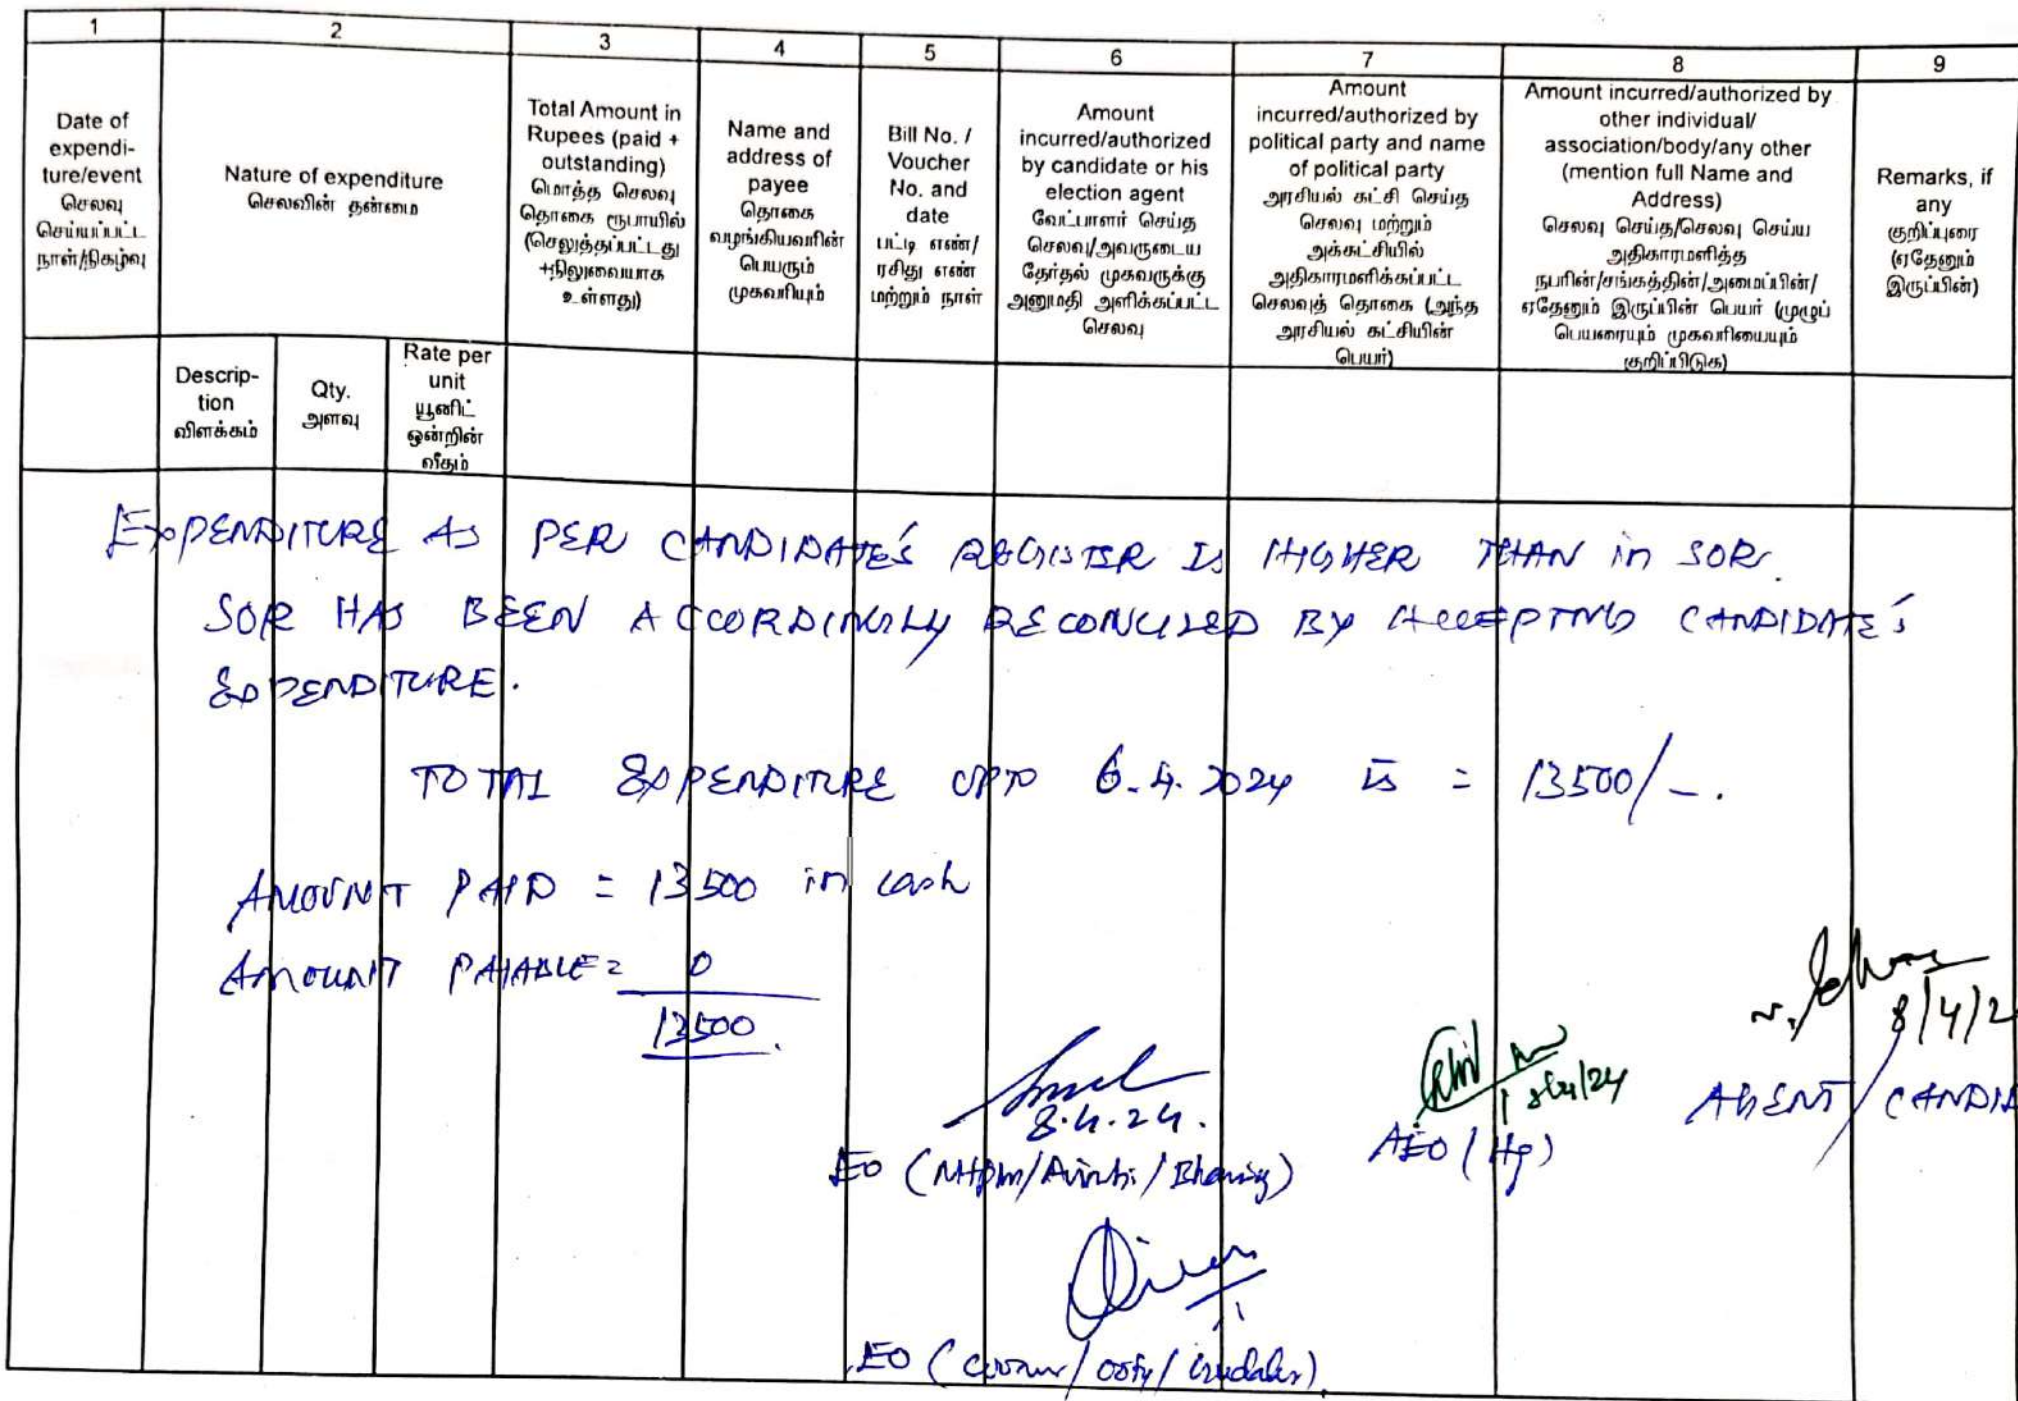 1 2 3 4 5 6 7 8 9
Date of
expendi-
ture/event
செலவு
செய்யப்பட்ட
நாள்/நிகழ்வு
Nature of expenditure
செலவின் தன்மை
Total Amount in
Rupees (paid +
outstanding)
மொத்த செலவு
தொகை ரூபாயில்
(செலுத்தப்பட்டது
+நிலுவையாக
உள்ளது)
Name and
address of
payee
தொகை
வழங்கியவரின்
பெயரும்
முகவரியும்
Bill No. /
Voucher
No. and
date
பட்டி எண்/
ரசிது எண்
மற்றும் நாள்
Amount
incurred/authorized
by candidate or his
election agent
வேட்பாளர் செய்த
செலவு/அவருடைய
தேர்தல் முகவருக்கு
அனுமதி அளிக்கப்பட்ட
செலவு
Amount
incurred/authorized by
political party and name
of political party
அரசியல் கட்சி செய்த
செலவு மற்றும்
அக்கட்சியில்
அதிகாரமளிக்கப்பட்ட
செலவுத் தொகை (அந்த
அரசியல் கட்சியின்
பெயர்)
Amount incurred/authorized by
other individual/
association/body/any other
(mention full Name and
Address)
செலவு செய்த/செலவு செய்ய
அதிகாரமளித்த
நபரின்/சங்கத்தின்/அமைப்பின்/
ஏதேனும் இருப்பின் பெயர் (முழுப்
பெயரையும் முகவரியையும்
குறிப்பிடுக)
Remarks, if
any
குறிப்புரை
(ஏதேனும்
இருப்பின்)
Descrip-
tion
விளக்கம்
Qty.
அளவு
Rate per
unit
யூனிட்
ஒன்றின்
வீதம்
EXPENDITURE AS PER CANDIDATE'S REGISTER IS HIGHER THAN in SOR.
SOR HAS BEEN ACCORDINGLY RECONCILED BY ACCEPTING CANDIDATE'S
EXPENDITURE.
TOTAL EXPENDITURE UPTO 6.4.2024 IS = 13500/-.
AMOUNT PAID = 13500 in cash
AMOUNT PAYABLE = 0
13500.
8/4/2
8.4.24.
8/4/24
AGENT / CANDIDA
EO (MTPM/Avinashi/Bhavani)
AEO (Hq)
EO (Coonoor/Ooty/Gudalur)